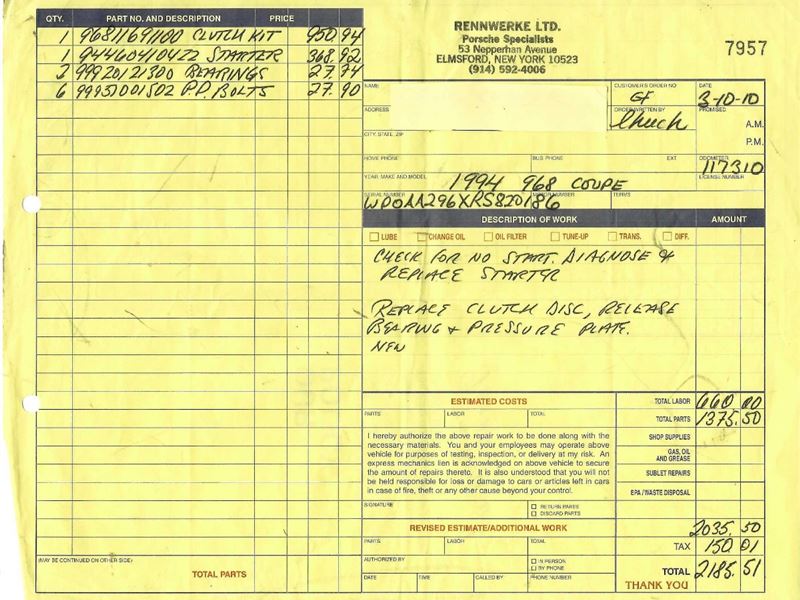 QTY. PART NO. AND DESCRIPTION PRICE
1 96811691100 CLUTCH KIT 950.94
1 94460410422 STARTER 368.92
2 99920121300 BEARINGS 27.74
6 99951001502 P.P. BOLTS 27.90
(MAY BE CONTINUED ON OTHER SIDE)
TOTAL PARTS
RENNWERKE LTD.
Porsche Specialists
53 Nepperhan Avenue
ELMSFORD, NEW YORK 10523
(914) 592-4006
7957
NAME CUSTOMER'S ORDER NO. DATE
GF 3-10-10
ADDRESS ORDER WRITTEN BY PROMISED
Chuck A.M.
CITY, STATE, ZIP P.M.
HOME PHONE BUS. PHONE EXT ODOMETER
117310
YEAR, MAKE AND MODEL LICENSE NUMBER
1994 968 COUPE
SERIAL NUMBER MOTOR NUMBER TERMS
WP0AA296XRS820186
DESCRIPTION OF WORK AMOUNT
LUBE CHANGE OIL OIL FILTER TUNE-UP TRANS. DIFF.
CHECK FOR NO START. DIAGNOSE &
REPLACE STARTER
REPLACE CLUTCH DISC, RELEASE
BEARING & PRESSURE PLATE.
NEW
ESTIMATED COSTS
PARTS LABOR TOTAL
TOTAL LABOR 660.00
TOTAL PARTS 1375.50
SHOP SUPPLIES
GAS, OIL
AND GREASE
SUBLET REPAIRS
EPA / WASTE DISPOSAL
I hereby authorize the above repair work to be done along with the
necessary materials. You and your employees may operate above
vehicle for purposes of testing, inspection, or delivery at my risk. An
express mechanics lien is acknowledged on above vehicle to secure
the amount of repairs thereto. It is also understood that you will not
be held responsible for loss or damage to cars or articles left in cars
in case of fire, theft or any other cause beyond your control.
SIGNATURE RETURN PARTS
DISCARD PARTS
REVISED ESTIMATE/ADDITIONAL WORK
2035.50
PARTS LABOR TOTAL
TAX 150 01
AUTHORIZED BY IN PERSON
BY PHONE
TOTAL 2185.51
DATE TIME CALLED BY PHONE NUMBER
THANK YOU